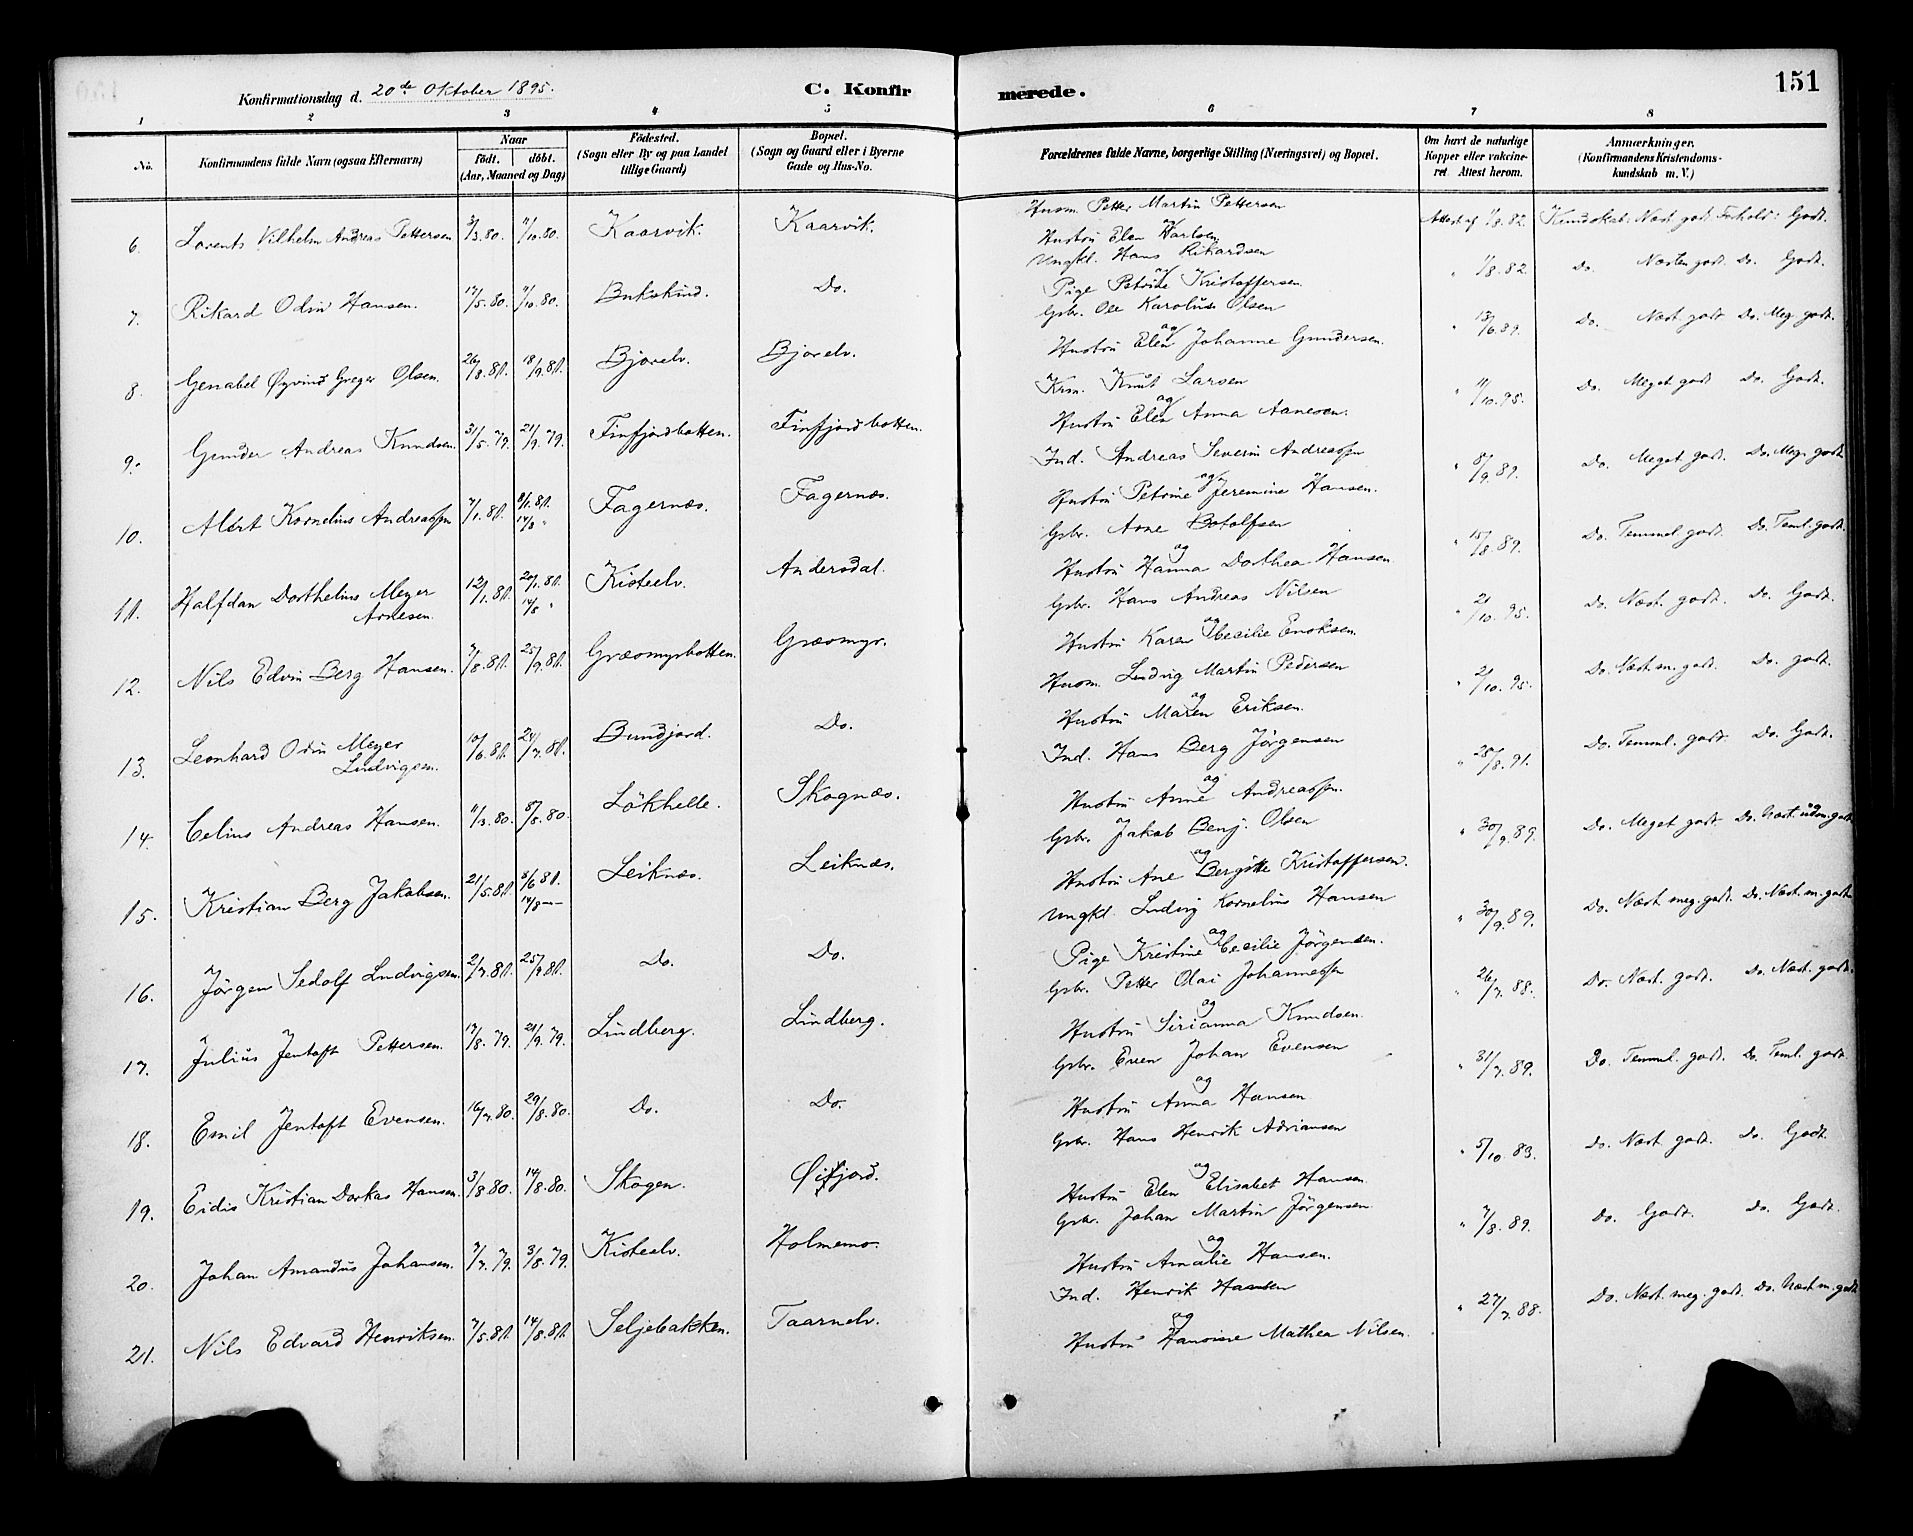 Konfirmationsdag d. 20de Oktober 1895. C. Konfirmerede. 151
1 2 3 4 5 6 7 8
No. Konfirmandens fulde Navn (ogsaa Efternavn) Naar födt. döbt. (Aar, Maaned og Dag) Födested. (Sogn eller By og paa Landet tillige Gaard) Bopæl. (Sogn og Gaard eller i Byerne Gade og Hus-No. Forældrenes fulde Navne, borgerlige Stilling (Næringsvei) og Bopæl. Om havt de naturlige Kopper eller vakcineret Attest herom. Anmærkninger. (Konfirmandens Kristendomskundskab m. V.)
6. Lorents Vilhelm Andreas Pettersen 3/3.80. 11/10.80. Kaarvik. Kaarvik. Husm. Petter Martin Pettersen
Hustru Elen Karlsen Attest af 1/8.82. Kundskab. Næst. godt. Forhold: Godt.
7. Rikard Odin Hansen. 17/5.80. 11/10.80. Bukskind. Do. Ungkl. Hans Rikardsen
og
Pige Petrine Kristoffersen. " 1/8.82 Do. Næsten godt. Do. Godt.
8. Genabel Øyvind Greger Olsen. 26/8.80. 18/9.80. Bjorelv. Bjorelv. Gbr. Ole Karolius Olsen
og
Hustru Elen Johanne Gundersen. " 13/6.89. Do. Næst. godt Do. Meg. godt.
9. Gunder Andreas Knudsen. 31/5.79. 21/9.79. Finfjordbotten. Finfjordbotten. Krm. Knut Larsen
og
Hustru Elen Anna Aanesen. " 11/10.95. Do. Meget godt Do. Godt.
10. Albert Kornelius Andreassen 7/1.80. 8/1.80.
14/3 " Fagernæs. Fagernæs. Ind. Andreas Severin Andreassen
og
Hustru Petrine Jeremine Hansen. " 8/9.89. Do. Meget godt. Do. Meg. godt
11. Halfdan Dorthelius Meyer
Arnesen. 12/1.80. 20/1.80.
14/3 " Kisteelv. Andersdal. Gbr. Arne Botolfsen
og
Hustru Hanna Dorthea Hansen. " 15/8.89. Do. Temmel. godt. Do. Teml. godt.
12. Nils Edvin Berg Hansen. 7/8.80. 25/9.80. Græsmyrbotten. Græsmyr. Gbr. Hans Andreas Nilsen
og
Hustru Karen Cecilie Enoksen. " 21/10.95. Do. Næst. godt. Do. Godt.
13. Leonhard Odin Meyer
Ludvigsen. 10/6.80. 24/7.80. Bundjord. Do. Husm. Ludvig Martin Pedersen
og
Hustru Maren Eriksen. " 2/10.95. Do. Næst m. godt. Do. godt.
14. Celius Andreas Hansen. 11/3.80. 8/8.80. Lökhelle. Skognæs. Ind. Hans Berg Jörgensen
og
Hustru Anne Andreassen. " 28/8.91. Do. Temml. godt. Do. Godt.
15. Kristian Berg Jakobsen. 21/5.80. 8/6.80.
14/8 — Leiknæs. Leiknæs. Gbr. Jakob Benj. Olsen
og
Hustru Ane Bergitte Kristoffersen. " 30/9.89. Do. Meget godt. Do. Næst. godt
16. Jörgen Sedolf Ludvigsen. 2/7.80. 25/9.80. Do. Do. Ungkl. Ludvig Kornelius Hansen
og
Pige Kristine Cecilie Jörgensen. " 30/9.89. Do. Næst meg. godt. Do. Næst. m. godt
17. Julius Jentoft Pettersen. 17/8.79. 21/9.79. Lindberg. Lindberg. Gbr. Petter Olai Johannessen
og
Hustru Sirianna Knudsen. " 26/7.88. Do. Næst. godt. Do. Næst. godt.
18. Emil Jentoft Evensen. 16/7.80. 29/8.80. Do. Do. Gbr. Even Johan Evensen
og
Hustru Anna Hansen " 31/7.89. Do. Temml. godt. Do. Teml. godt.
19. Eidis Kristian Dorkas Hansen. 3/8.80. 14/8.80. Skogen. Øifjord. Gbr. Hans Henrik Adriansen
og
Hustru Elen Elisabet Hansen " 5/10 83. Do. Næst. godt. Do. Godt.
20. Johan Amandus Johansen. 7/7.79. 3/8.79. Kisteelv. Holmemo. Gbr. Johan Martin Jörgensen.
og
Hustru Amalie Hansen. " 7/8.89. Do. Godt. Do. Godt.
21. Nils Edvard Henriksen. 7/5.80. 14/8.80. Seljebakken. Taarnelv. Ind. Henrik Hansen
og
Hustru Hansine Mathea Nilsen. " 27/7.88. Do. Næst. meg. godt. Do. Næst m. godt